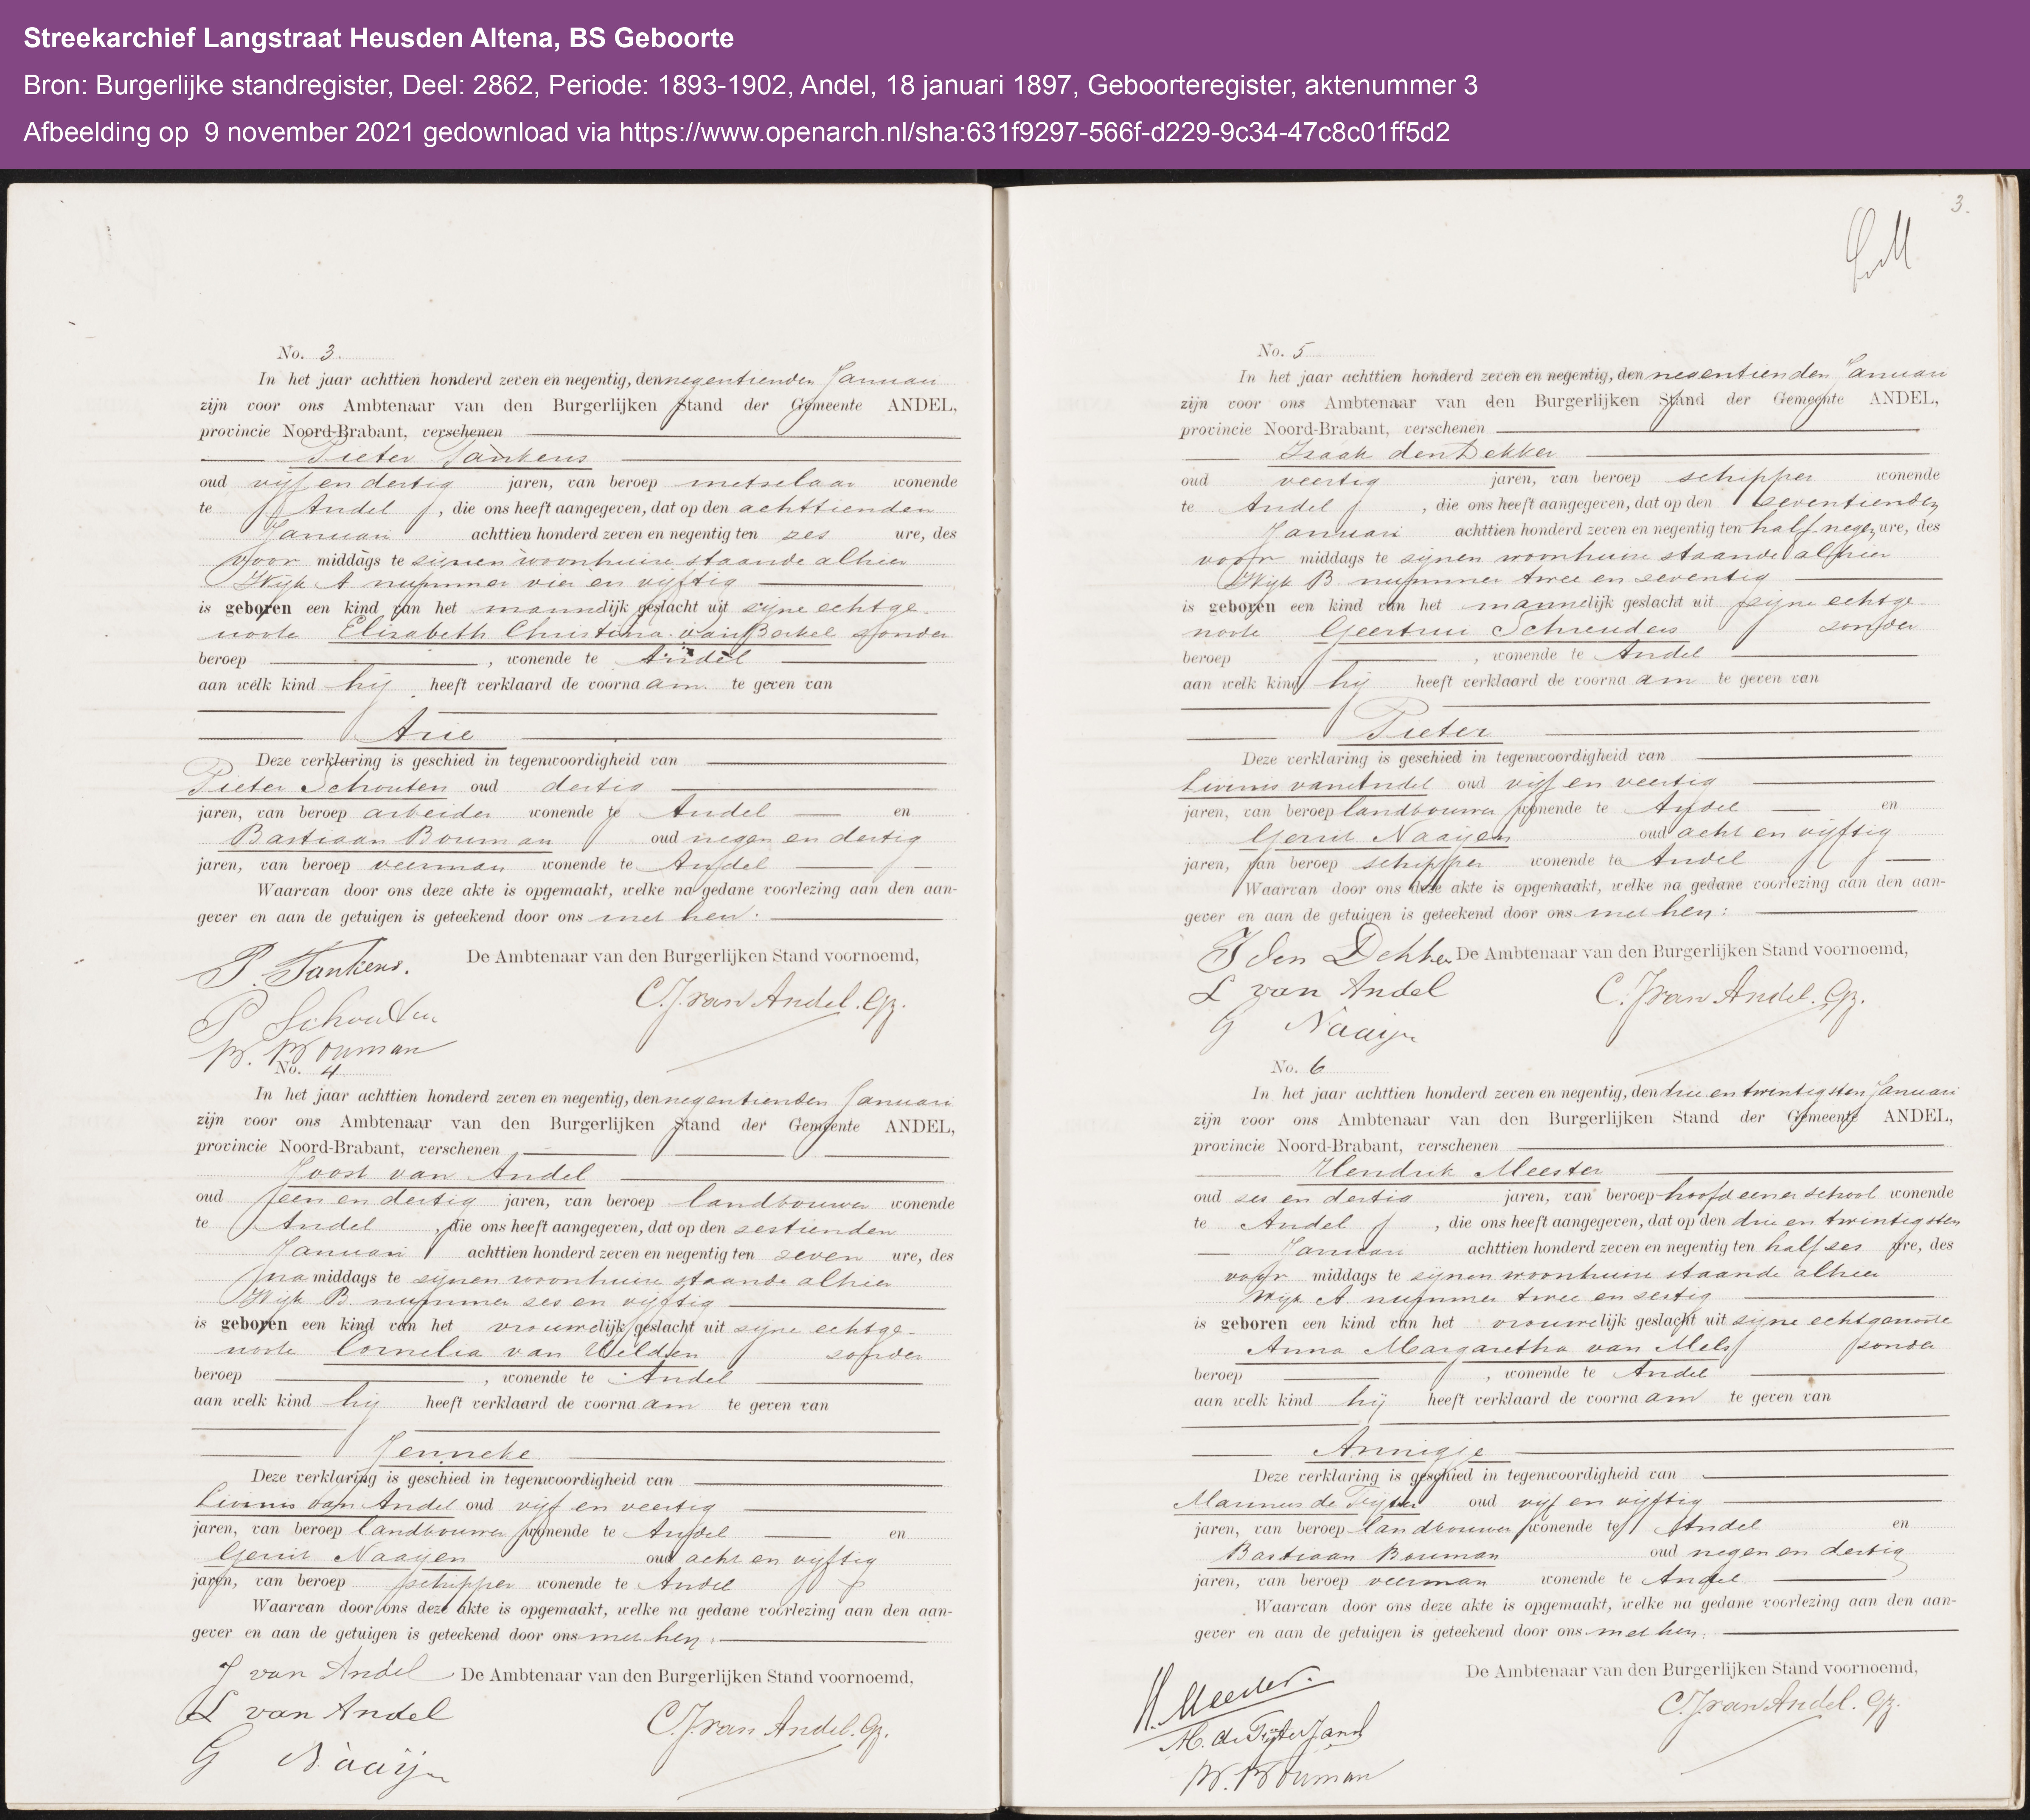 Streekarchief Langstraat Heusden Altena, BS Geboorte
Bron: Burgerlijke standregister, Deel: 2862, Periode: 1893-1902, Andel, 18 januari 1897, Geboorteregister, aktenummer 3
Afbeelding op 9 november 2021 gedownload via https://www.openarch.nl/sha:631f9297-566f-d229-9c34-47c8c01ff5d2
No. 3.
In het jaar achttien honderd zeven en negentig, den negentienden Januari
zijn voor ons Ambtenaar van den Burgerlijken Stand der Gemeente ANDEL,
provincie Noord-Brabant, verschenen
Pieter Tankens
oud vijf en dertig jaren, van beroep metselaar wonende
te Andel, die ons heeft aangegeven, dat op den achttienden
Januari achttien honderd zeven en negentig ten zes ure, des
voor middags te zijnen woonhuize staande alhier
Wijk A nummer vier en vijftig
is geboren een kind van het mannelijk geslacht uit zijne echtge-
noote Elisabeth Christina van Berkel zonder
beroep , wonende te Andel
aan welk kind hij heeft verklaard de voornaam te geven van
Arie
Deze verklaring is geschied in tegenwoordigheid van
Pieter Schouten oud dertig
jaren, van beroep arbeider wonende te Andel en
Bastiaan Bouman oud negen en dertig
jaren, van beroep veerman wonende te Andel
Waarvan door ons deze akte is opgemaakt, welke na gedane voorlezing aan den aan-
gever en aan de getuigen is geteekend door ons met hen.
P. Tankens. De Ambtenaar van den Burgerlijken Stand voornoemd,
P Schouten C.J. van Andel. Gz.
B. Bouman
No. 4
In het jaar achttien honderd zeven en negentig, den negentienden Januari
zijn voor ons Ambtenaar van den Burgerlijken Stand der Gemeente ANDEL,
provincie Noord-Brabant, verschenen
Joost van Andel
oud een en dertig jaren, van beroep landbouwer wonende
te Andel, die ons heeft aangegeven, dat op den zestienden
Januari achttien honderd zeven en negentig ten zeven ure, des
na middags te zijnen woonhuize staande alhier
Wijk B. nummer zes en vijftig
is geboren een kind van het vrouwelijk geslacht uit zijne echtge-
noote Cornelia van Welden zonder
beroep , wonende te Andel
aan welk kind hij heeft verklaard de voornaam te geven van
Jenneke
Deze verklaring is geschied in tegenwoordigheid van
Livinus van Andel oud vijf en veertig
jaren, van beroep landbouwer wonende te Andel en
Gerrit Naaijen oud acht en vijftig
jaren, van beroep schipper wonende te Andel
Waarvan door ons deze akte is opgemaakt, welke na gedane voorlezing aan den aan-
gever en aan de getuigen is geteekend door ons met hen.
J van Andel De Ambtenaar van den Burgerlijken Stand voornoemd,
L van Andel C.J. van Andel. Gz.
G Naaijen
3.
No. 5
In het jaar achttien honderd zeven en negentig, den negentienden Januari
zijn voor ons Ambtenaar van den Burgerlijken Stand der Gemeente ANDEL,
provincie Noord-Brabant, verschenen
Izaak den Dekker
oud veertig jaren, van beroep schipper wonende
te Andel, die ons heeft aangegeven, dat op den zeventienden
Januari achttien honderd zeven en negentig ten half negen ure, des
voor middags te zijnen woonhuize staande alhier
Wijk B. nummer twee en zeventig
is geboren een kind van het mannelijk geslacht uit zijne echtge-
noote Geertrui Schreuders zonder
beroep , wonende te Andel
aan welk kind hij heeft verklaard de voornaam te geven van
Pieter
Deze verklaring is geschied in tegenwoordigheid van
Livinus van Andel oud vijf en veertig
jaren, van beroep landbouwer wonende te Andel en
Gerrit Naaijen oud acht en vijftig
jaren, van beroep schipper wonende te Andel
Waarvan door ons deze akte is opgemaakt, welke na gedane voorlezing aan den aan-
gever en aan de getuigen is geteekend door ons met hen:
I den Dekker De Ambtenaar van den Burgerlijken Stand voornoemd,
L van Andel C. J van Andel. Gz.
G Naaijen
No. 6
In het jaar achttien honderd zeven en negentig, den drie en twintigsten Januari
zijn voor ons Ambtenaar van den Burgerlijken Stand der Gemeente ANDEL,
provincie Noord-Brabant, verschenen
Hendrik Meester
oud zes en dertig jaren, van beroep hoofd eener school wonende
te Andel, die ons heeft aangegeven, dat op den drie en twintigsten
Januari achttien honderd zeven en negentig ten half zes ure, des
voor middags te zijnen woonhuize staande alhier
Wijk A. nummer twee en zestig
is geboren een kind van het vrouwelijk geslacht uit zijne echtgenoote
Anna Margaretha van Mels zonder
beroep , wonende te Andel
aan welk kind hij heeft verklaard de voornaam te geven van
Annigje
Deze verklaring is geschied in tegenwoordigheid van
Marinus de Fijter oud vijf en vijftig
jaren, van beroep landbouwer wonende te Andel en
Bastiaan Bouman oud negen en dertig
jaren, van beroep veerman wonende te Andel
Waarvan door ons deze akte is opgemaakt, welke na gedane voorlezing aan den aan-
gever en aan de getuigen is geteekend door ons met hen.
De Ambtenaar van den Burgerlijken Stand voornoemd,
H. Meester. C.J. van Andel. Gz.
M. de Fijter Jansz
B. Bouman